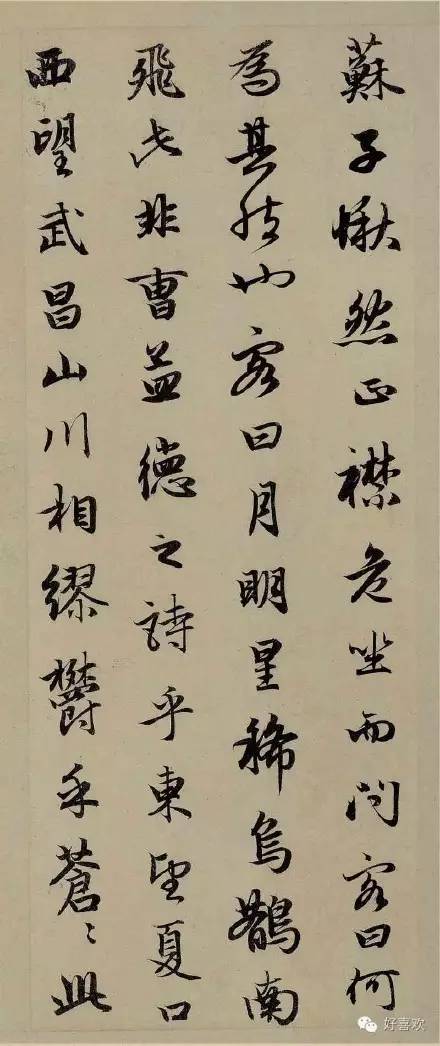 蘇子愀然正襟危坐而問客曰何
為其然也客曰月明星稀烏鵲南
飛此非曹孟德之詩乎東望夏口
西望武昌山川相繆鬱乎蒼〻此
好喜欢